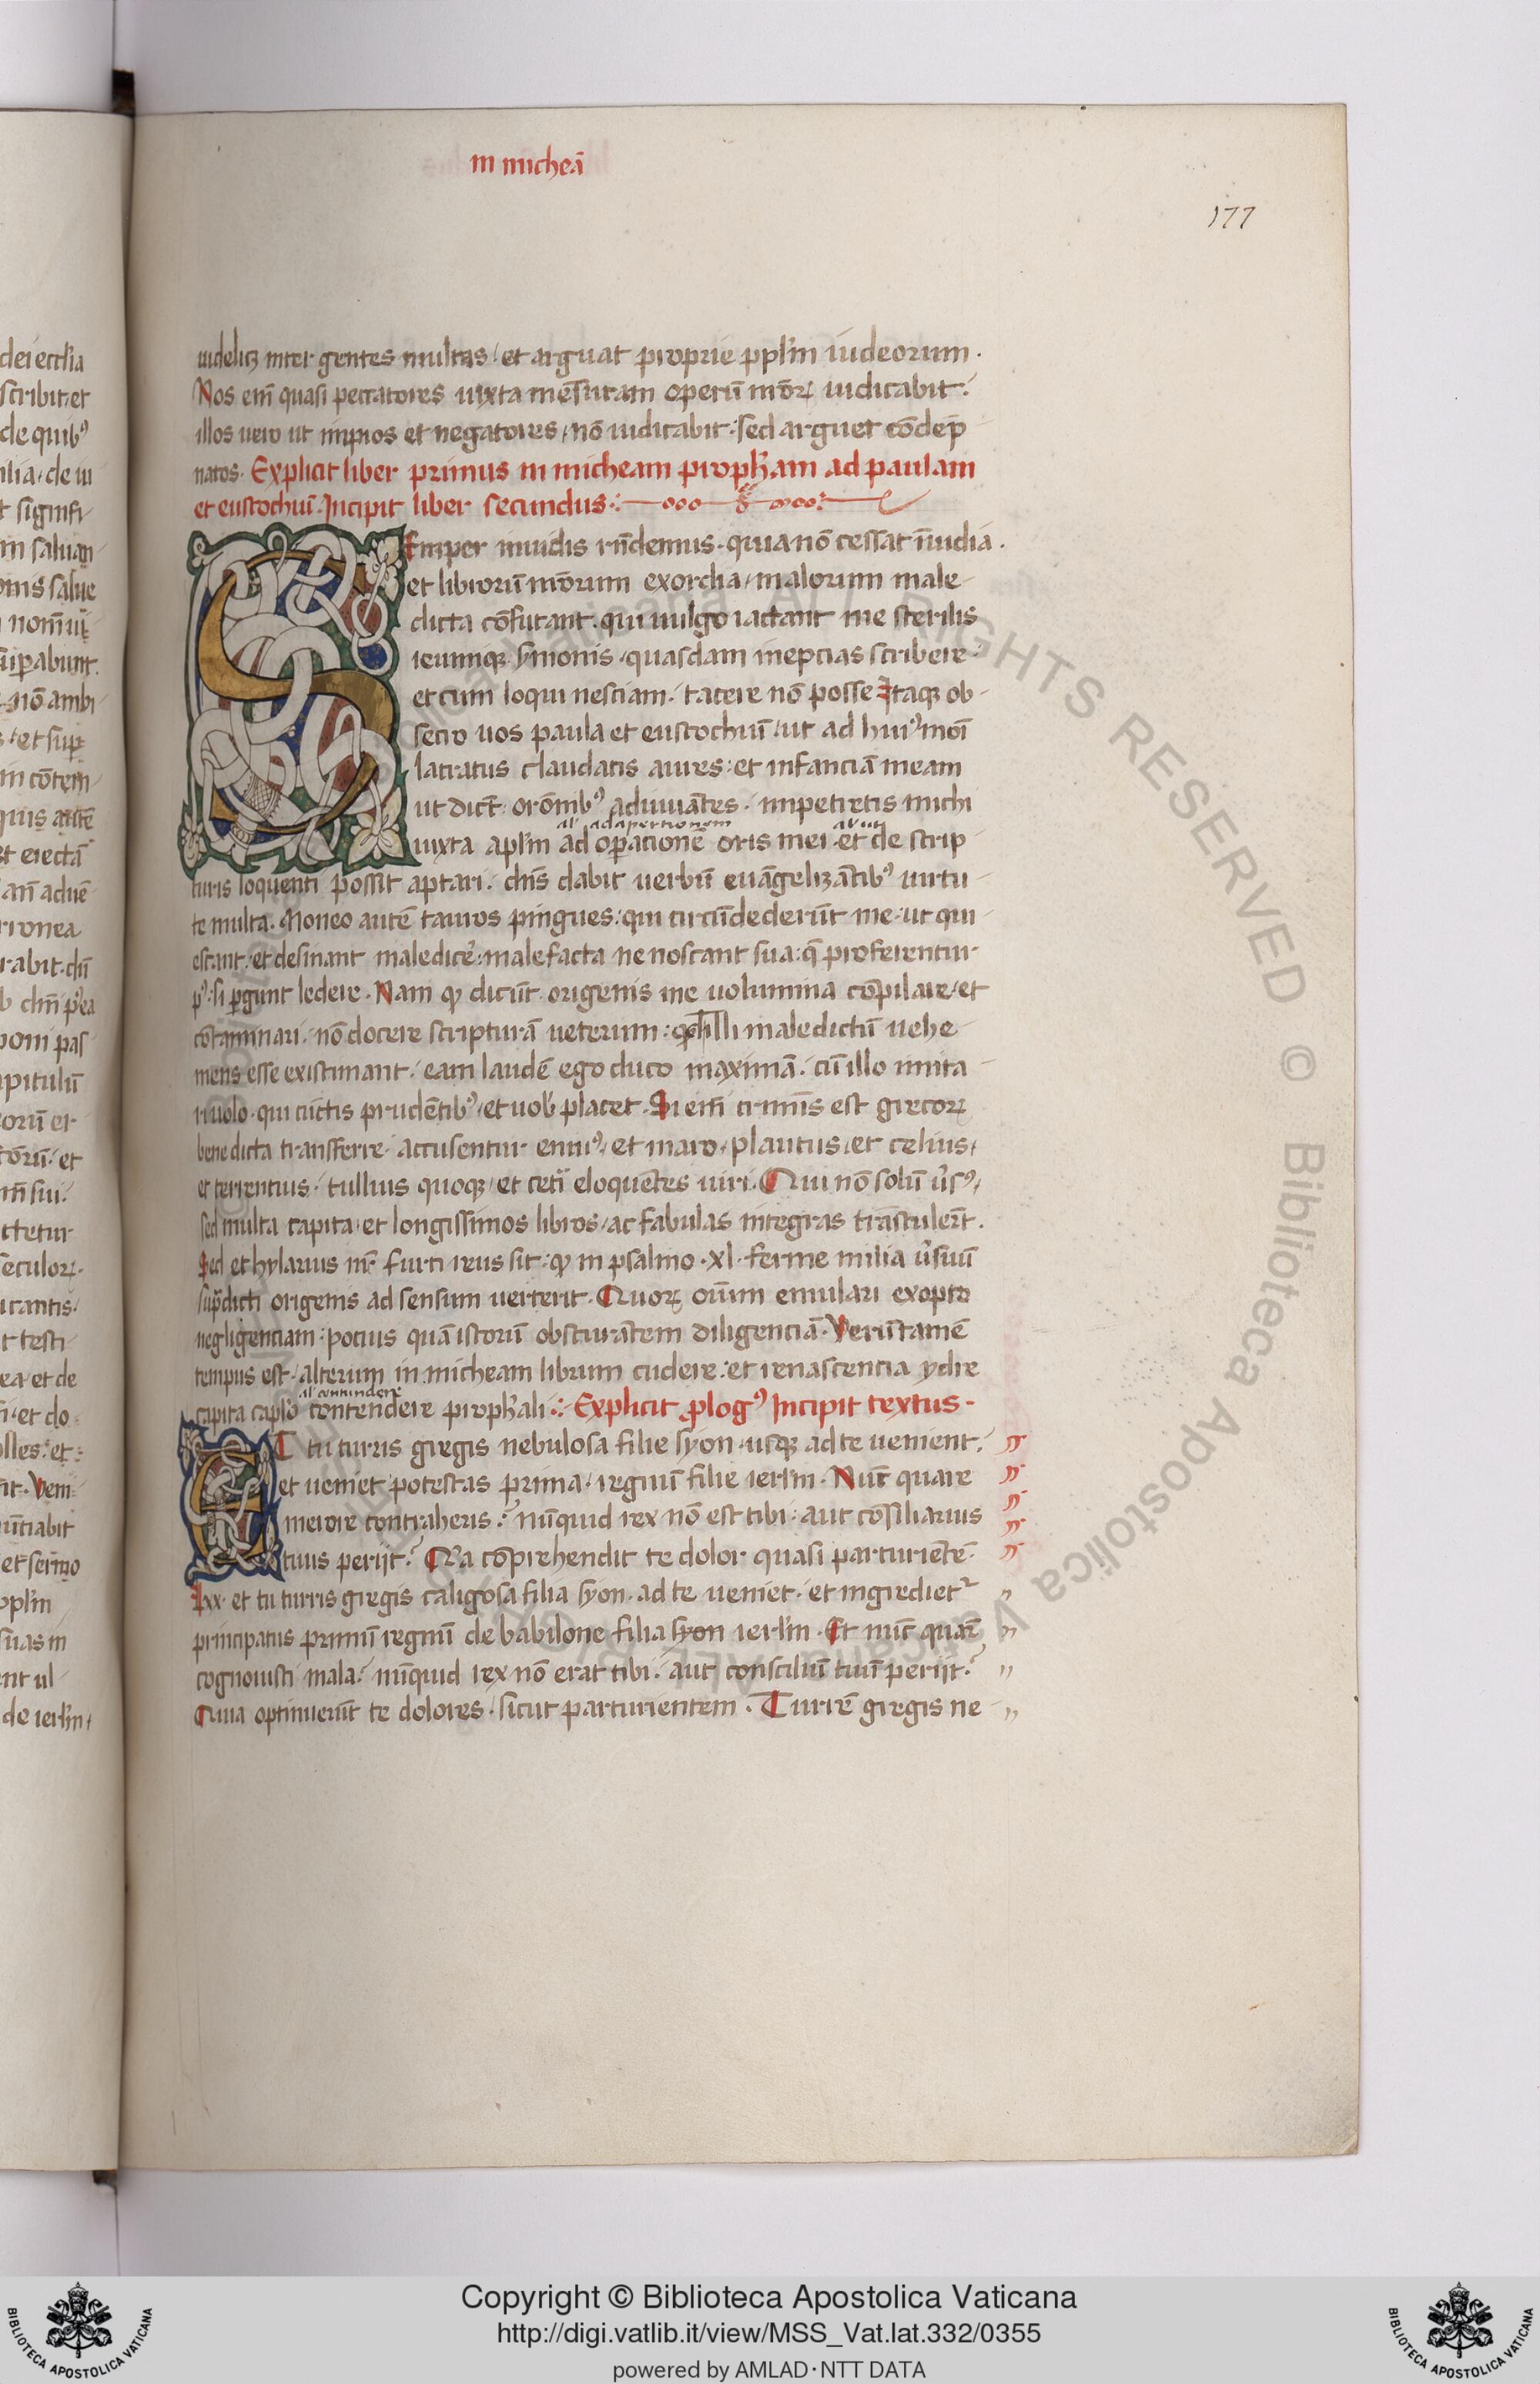 in micheā
177
uidelicꝫ inter gentes multas / et arguat proprie ppl'm iudeorum .
Nos em̄ quasi peccatores iuxta mensuram operū nr̄oꝝ iudicabit :
illos uero ut impios et negatores / nō iudicabit : sed arguet cōdēp
natos . Explicit liber primus in micheam proph̄am ad paulam
et eustochiū . Incipit liber secundus :
Semper inuidis rn̄demus . quia nō cessat īuidia .
et librorū nr̄orum exordia / malorum male-
dicta cōfutant . qui uulgo iactant me sterilis
ieiuniqꝫ sermonis . quasdam ineptias scribere :
et cum loqui nesciam . tacere nō posse Itaqꝫ ob-
secro uos paula et eustochiū / ut ad hui᾽ moī
latratus claudatis aures : et infanciā meam
ut dict̄ . orōnib᾽ adiuuātes . impetretis michi
al' ad apertionem al' ut
iuxta apl'm ad opationē oris mei . et de scrip
turis loquenti possit aptari . dn̄s dabit uerbū euāgelizātib᾽ uirtu-
te multa . Moneo autē tauros pingues : qui circūdederūt me . ut qui-
escant . et desinant maledicē : malefacta ne noscant sua : q̄ proferentur
p᾽ . si pgunt ledere . Nam qđ dicūt . origenis me uolumina cōpilare / et
cōtaminari . nō docere scripturā ueterum : qđ illi maledictū uehe-
mens esse existimant . eam laudē ego duco maximā . cū illo imita-
ri uolo . qui cūctis prudētib᾽ / et uob' placet . Si em̄ crim̄is est grecoꝝ
benedicta transferre . accusentur enniu᾽ / et maro / plautus / et celius /
et terrentius . tullius quoqꝫ / et cet̄i eloquētes uiri . Qui nō solū ūs᾽ /
sed multa capita / et longissimos libros / ac fabulas integras trāstuler̄t .
Sed et hylarius m̄r furti reus sit : qđ in psalmo . xl . ferme milia ūsuū
sup̄dicti origenis ad sensum uerterit . Quoꝝ om̄m emulari exopto
negligenciam : pocius quā istorū obscurātem diligenciā . Verūtamē
tempus est / alterum in micheam librum cudere : et renascentia ydre
al' contundere
capita capl'o contendere proph̄ali : Explicit plog᾽ Incipit textus .
Et tu turris gregis nebulosa filie syon . usqꝫ ad te uenient .
et ueniet potestas prima . regnū filie ierl'm . Nūc quare
merore contraheris ? nūquid rex nō est tibi : aut cōsiliarius
tuus perijt ? Q'a cōprehendit te dolor quasi parturiētē .
Lxx . et tu turris gregis caligosa filia syon . ad te ueniet . et ingrediet᾽
principatus primū regnū de babilone filia syon ierl'm . Et nūc quar̄
cognouisti mala ? nūquid rex nō erat tibi . aut consciliū tuū perijt ?
Quia optinuerūt te dolores . sicut parturientem . Turrē gregis ne-
dei eccl'ia
scribit et
de quib᾽
Copyright © Biblioteca Apostolica Vaticana
http://digi.vatlib.it/view/MSS_Vat.lat.332/0355
powered by AMLAD·NTT DATA
BIBLIOTECA APOSTOLICA VATICANA
BIBLIOTECA APOSTOLICA VATICANA